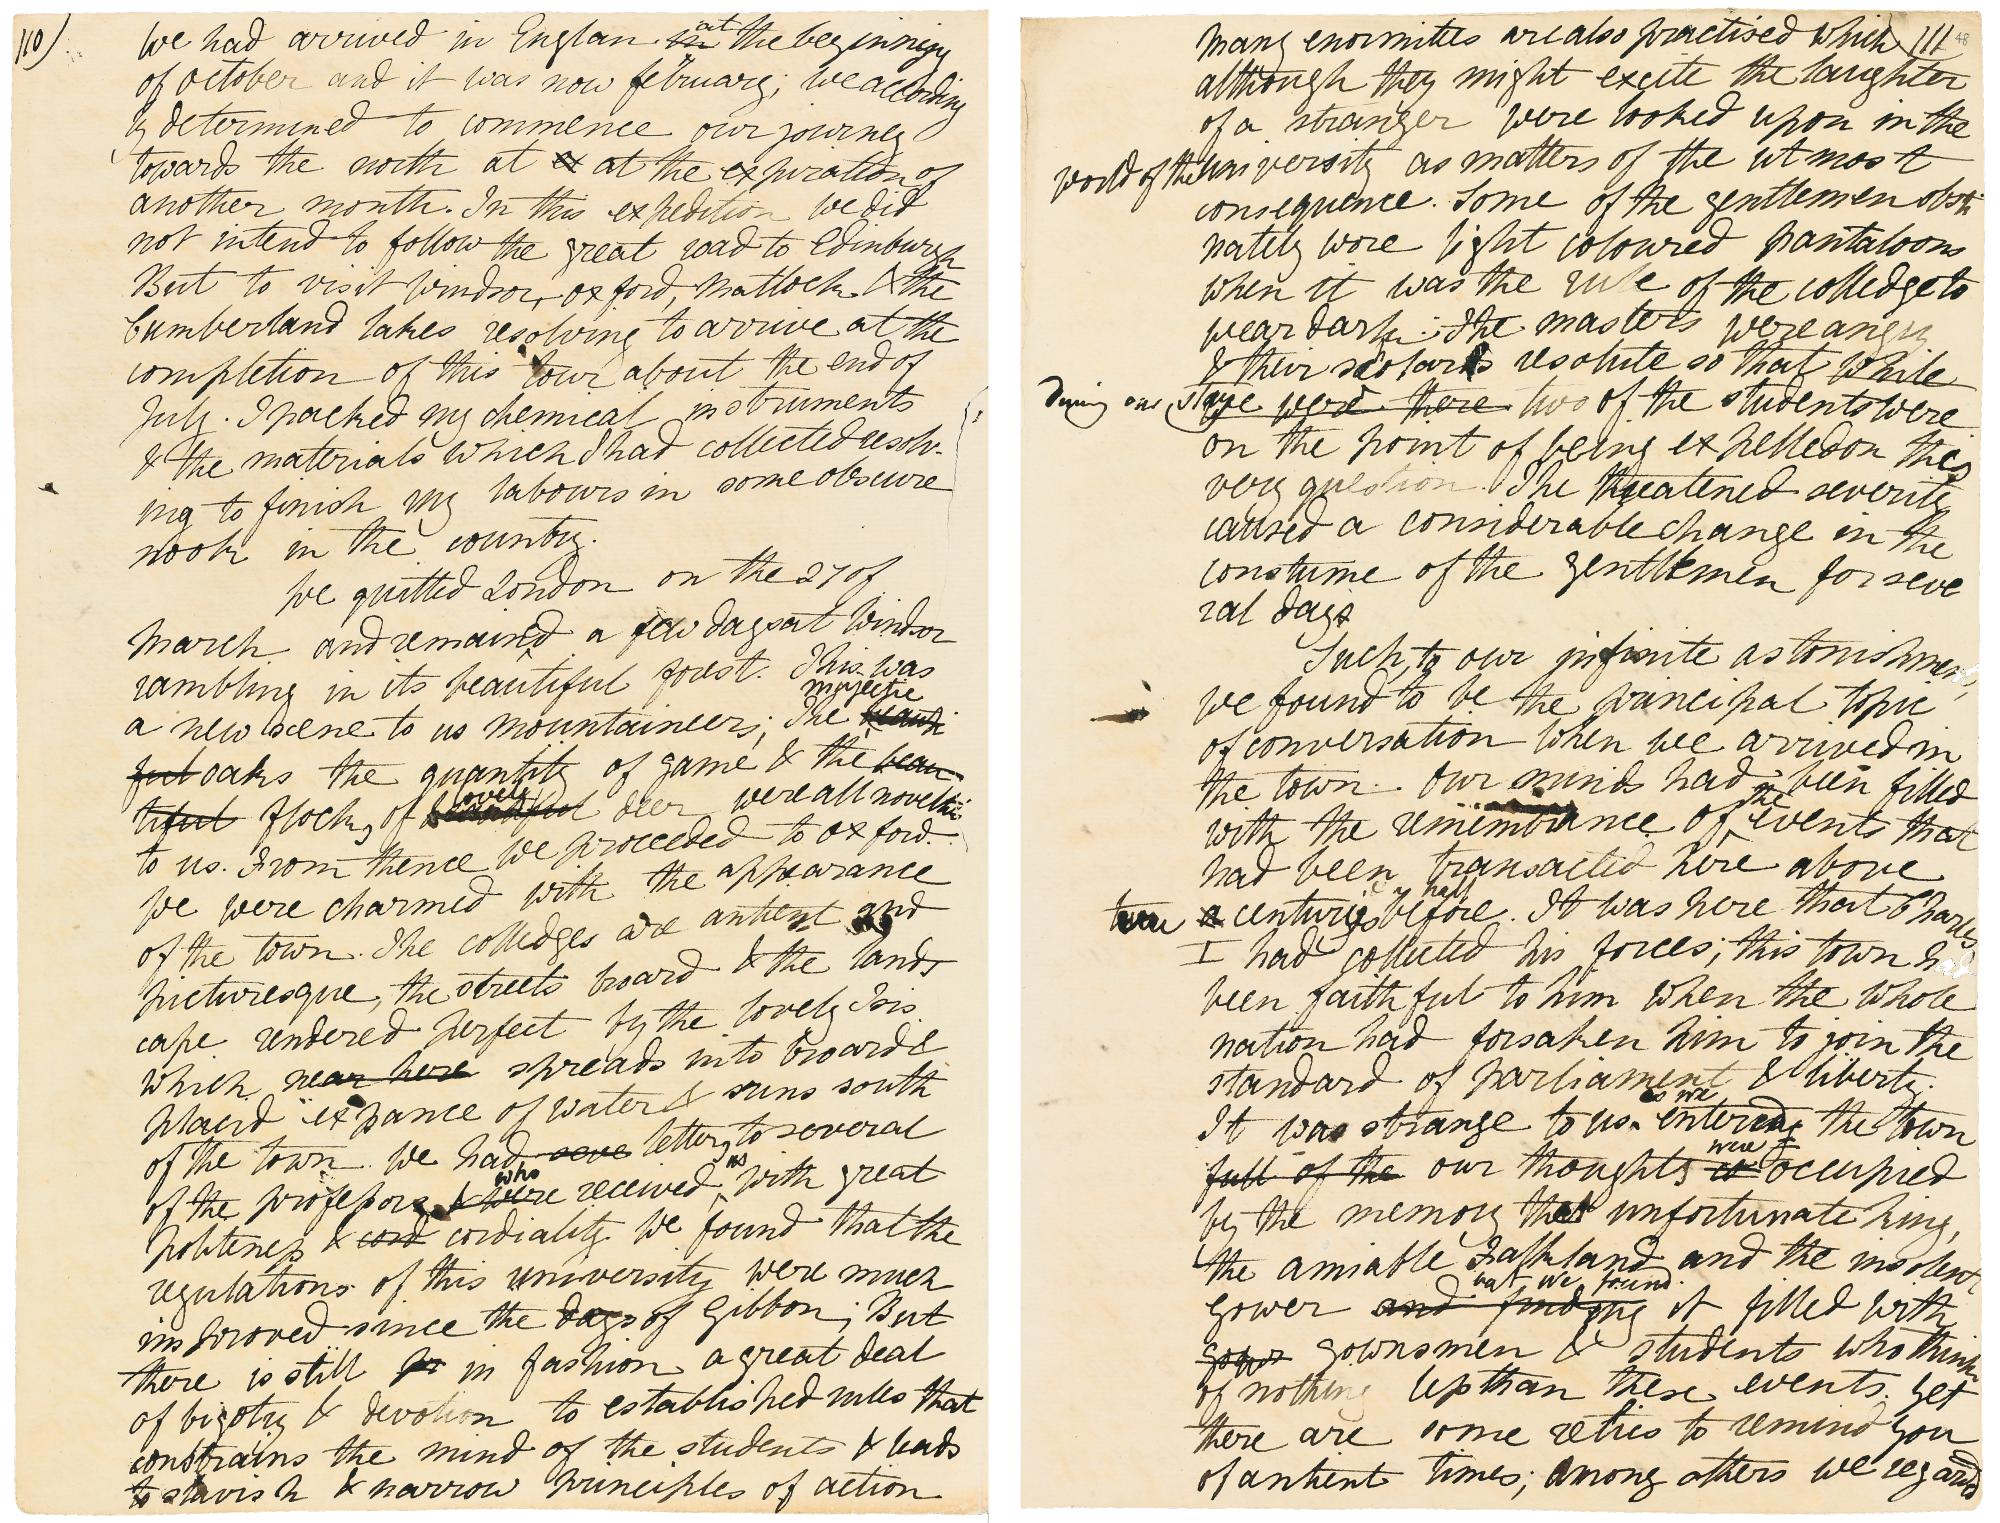 110)
we had arrived in Englan in at the beginning
of october and it was now february; we according
ly determined to commence our journey
towards the north at ex at the expiration of
another month. In this expedition we did
not intend to follow the great road to Edinburgh
But to visit Windsor, oxford, Matlock & the
Cumberland lakes resolving to arrive at the
completion of this tour about the end of
July. I packed my chemical instruments
& the materials which I had collected resolv-
ing to finish my labours in some obscure
nook in the country.
We quitted London on the 27 of
March and remained a few days at Windsor
rambling in its beautiful forest. This was
a new scene to us mountaineers; The beauti majestic
ful oaks the quantity of game & the beau-
tiful flocks of beautiful lovely deer were all novelties
to us. From thence we proceeded to oxford.
We were charmed with the appearance
of the town. The colledges are antient and
picturesque, the streets broard & the lands
cape rendered perfect by the lovely Isis
which near here spreads into broard &
placid expance of water & runs south
of the town. We had seve letters to several
of the professors & were who received us with great
politeness & cord cordiality. We found that the
regulations of this university were much
improved since the days of Gibbon; But
there is still in fashion a great deal
of bigotry & devotion to established rules that
constrains the mind of the students & leads
to slavish & narrow principles of action
111
48
Many enormities are also practised which
although they might excite the laughter
of a stranger were looked upon in the
world of the university as matters of the utmost
consequence. Some of the gentlemen obsti
nately wore light coloured pantaloons
when it was the rule of the colledge to
wear dark: The masters were angry
& their scolars resolute so that while
during our stay we were there two of the students were
on the point of being expelled on this
very question. The threatened severity
caused a considerable change in the
constume of the gentlemen for seve
ral days
Such, to our infinite astonishment,
we found to be the principal topic
of conversation when we arrived in
the town. Our minds had been filled
with the remembrance of the events that
had been transacted here above
a centuries & half before. It was here that Charles
I had collected his forces; this town had
been faithful to him when the whole
nation had forsaken him to join the
standard of parliament & liberty.
It was strange to us as we entered the town
full of the our thoughts were occupied
by the memory that unfortunate king,
the amiable Falkland and the insolent
Gower and finding but we found it filled with
gows gownsmen & students who think
of nothing less than these events. Yet
there are some relics to remind you
of antient times; among others we regard